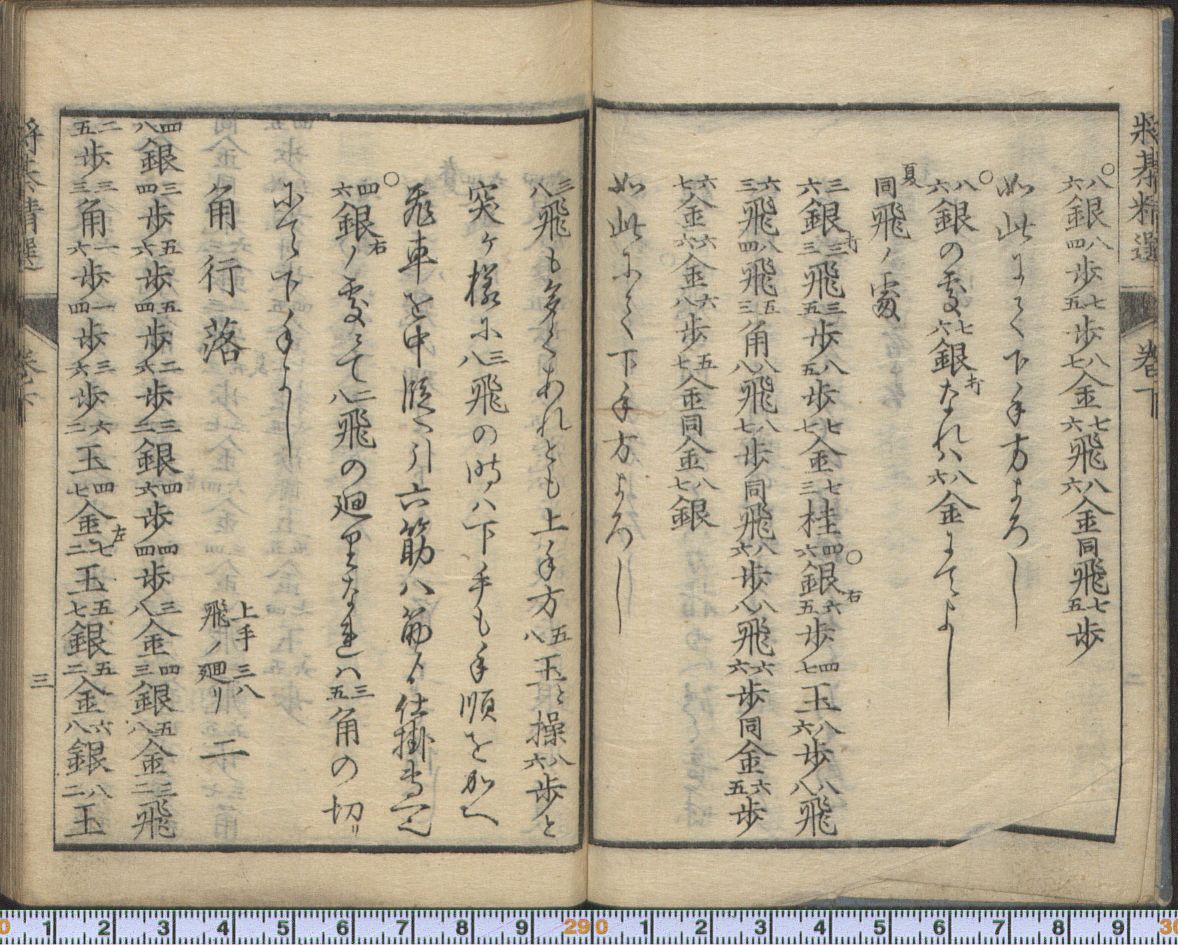 将棊精選 巻下
○八六銀八四歩七五歩八七金七六飛八六金同飛七五歩
如此にて下手方よろし
○八六銀の変七六銀打なれハ八六金にてよし
夏同飛ノ変
三六銀三三飛成三五歩八五歩七七金七三桂○四六銀右六五歩四七玉八六歩八八飛
六三飛八四飛五三角八八飛八七歩同飛八六歩八八飛六六歩同金六五歩
六七金六六金六八歩五七金同金八七銀
如此にて下手方よろし
三八飛も多くあれとも上手方五八玉と操八六歩と
突ヶ様に三八飛の時ハ下手も手順を加へ
飛車を中段へ引六筋八筋より仕掛へし
○四六銀右ノ変にて二八飛の廻りなれハ三五角の切リ
にて下手よし
角行落 上手三八飛ノ廻リ 二
四八銀三四歩五六歩五四歩二六歩三二銀四六歩四四歩三八金四三銀五八金三二飛
二五歩三三角一六歩一四歩三六歩六二玉四七金左七二玉五七銀五二金六八銀八二玉
将棊精選 巻下 三